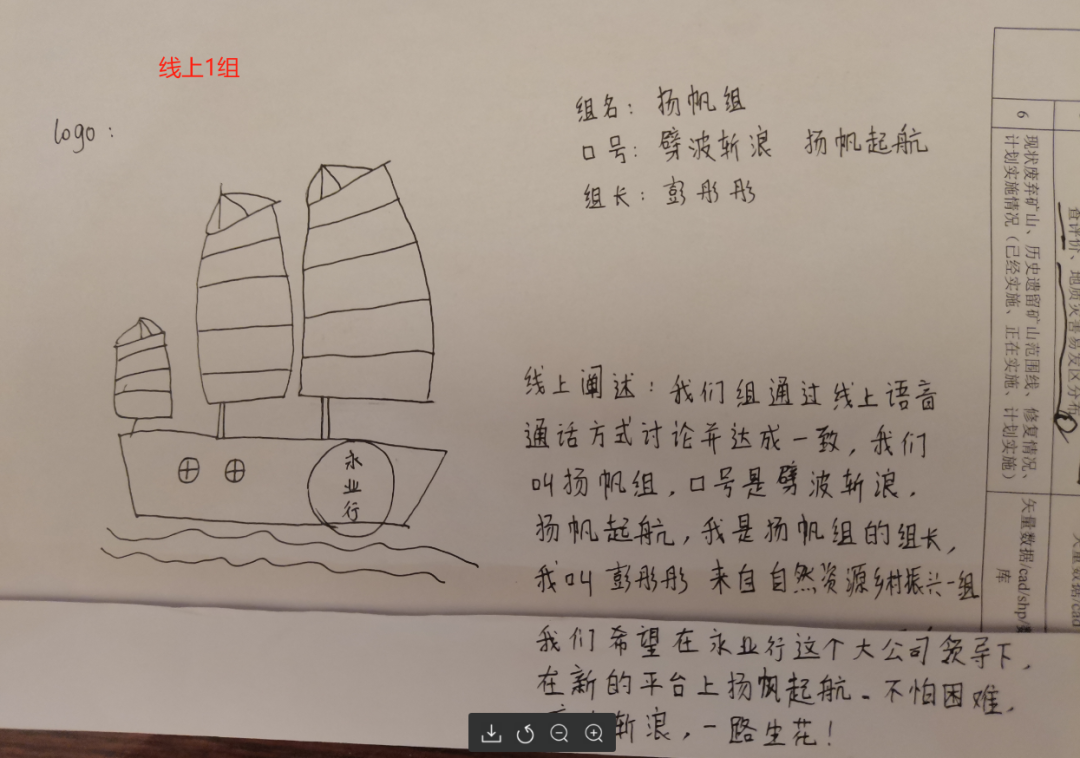 线上1组
logo：
组名：扬帆组
口号：劈波斩浪 扬帆起航
组长：彭彤彤
永
业
行
线上阐述：我们组通过线上语音
通话方式讨论并达成一致，我们
叫扬帆组，口号是劈波斩浪，
扬帆起航，我是扬帆组的组长，
我叫彭彤彤 来自自然资源乡村振兴一组
我们希望在永业行这个大公司领导下，
在新的平台上扬帆起航、不怕困难，
斩浪，一路生花！
查评价、地质灾害易发区分布
6
现状废弃矿山、历史遗留矿山范围线、修复情况、
计划实施情况（已经实施、正在实施、计划实施）
矢量数据/cad/shp/
库